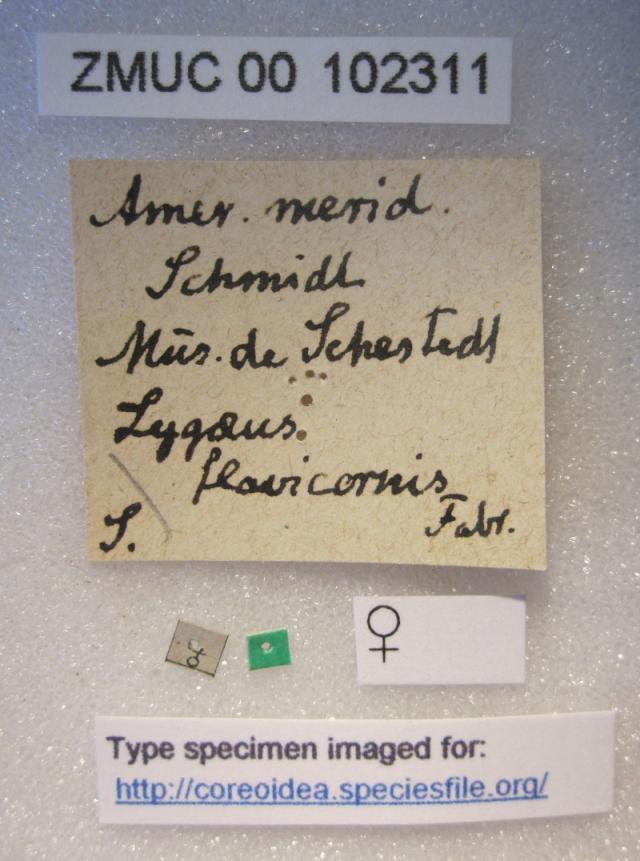 ZMUC 00 102311
Amer. merid.
Schmidt
Mūs. de Sehestedt
Lygæus
flavicornis
Fabr.
S.
♀
♀
Type specimen imaged for:
http://coreoidea.speciesfile.org/